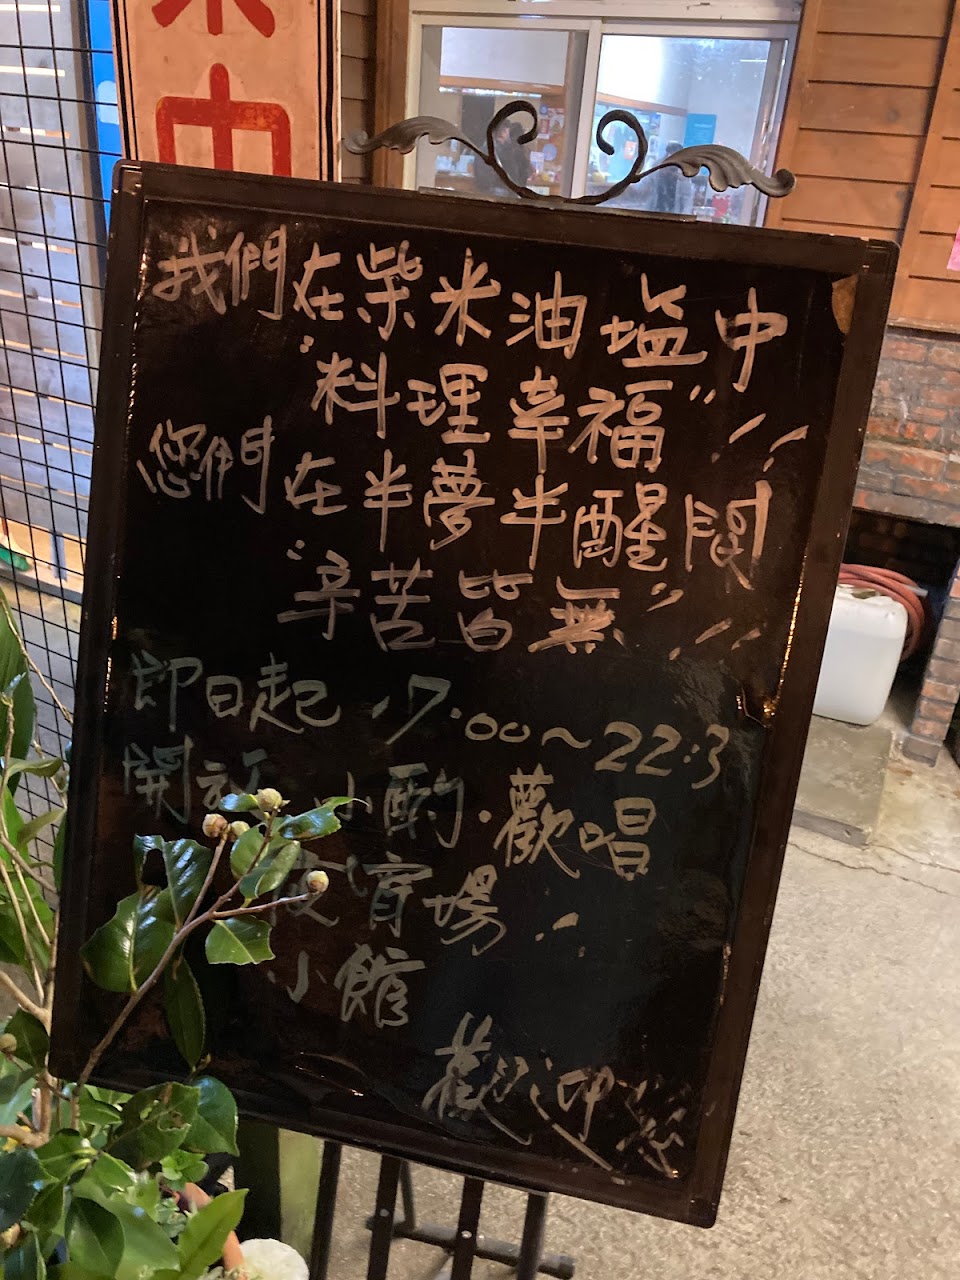 業中
我們在柴米油塩中
"料理幸福"
您們在半夢半醒間
"辛苦皆無"
即日起 17:00~22:3
開放 小酌·歡唱
夜宵場
小館
歡迎您